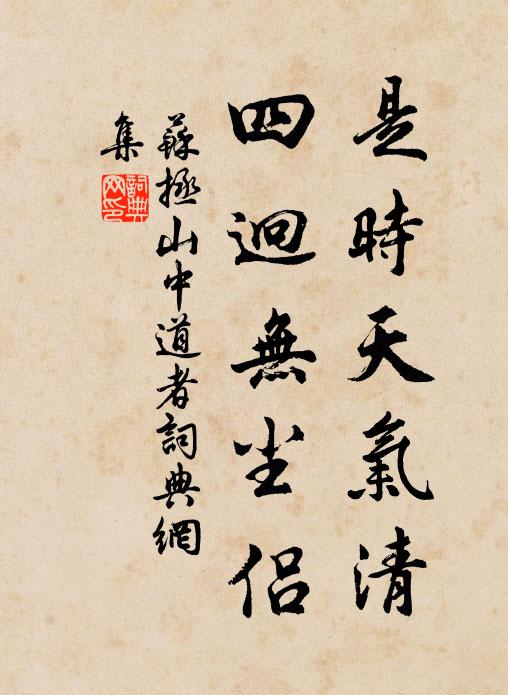 是時天氣清
四迥無尘侣
蘇拯山中道者詞典網
集
詞典網印